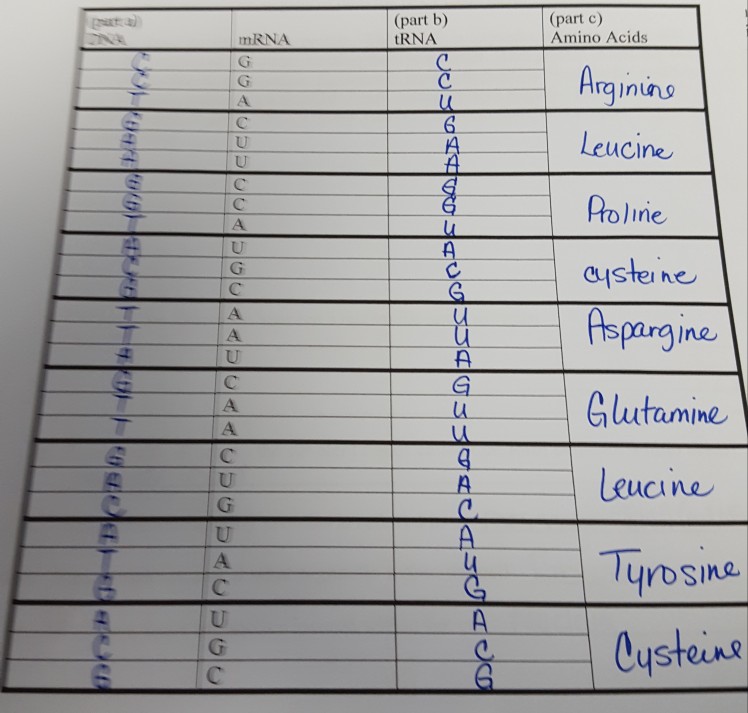 (part a) (part b) (part c)
DNA mRNA tRNA Amino Acids
G C
G C Arginine
A U
C G
U A Leucine
U A
C G
C G Proline
A U
U A
G C cysteine
C G
A U
A U Aspargine
U A
C G
A U Glutamine
A U
C G
U A Leucine
G C
U A
A U Tyrosine
C G
U A
G C Cysteine
C G